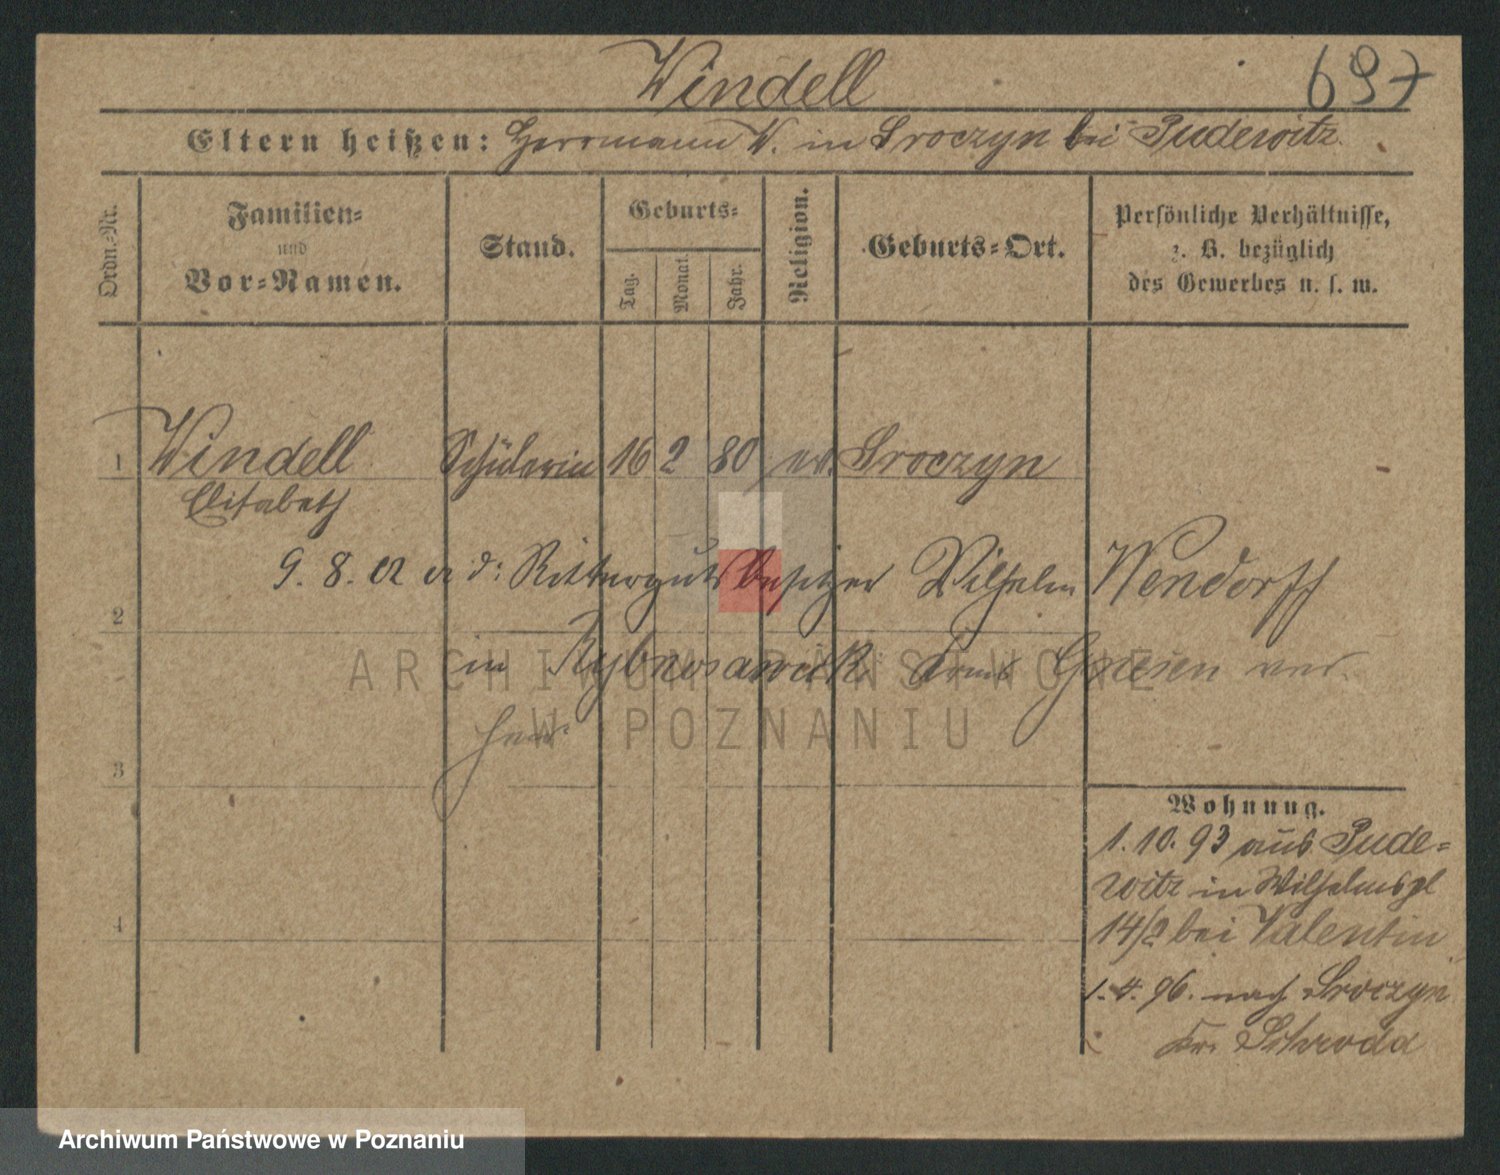 Windell
697
Eltern heißen: Herrmann W. in Sroczyn bei Pudewitz.
Ordn.-Nr.
Familien-
und
Vor-Namen.
Stand.
Geburts-
Tag.
Monat.
Jahr.
Religion.
Geburts-Ort.
Persönliche Verhältnisse,
z. B. bezüglich
des Gewerbes u. s. w.
1 Windell Schülerin 16 2 80 ev. Sroczyn
Elisabeth
9. 8. 02 d: Rittergutsbesitzer Wilhelm Wendorff
2
in Kreis Gnesen ver
3
4
Wohnung.
1. 10. 93 aus Pude-
witz in Wilhelmspl
14/2 bei Valentin
1. 4. 96. nach Sroczyn
Kr. Schroda
ARCHIWUM PAŃSTWOWE
W POZNANIU
Archiwum Państwowe w Poznaniu